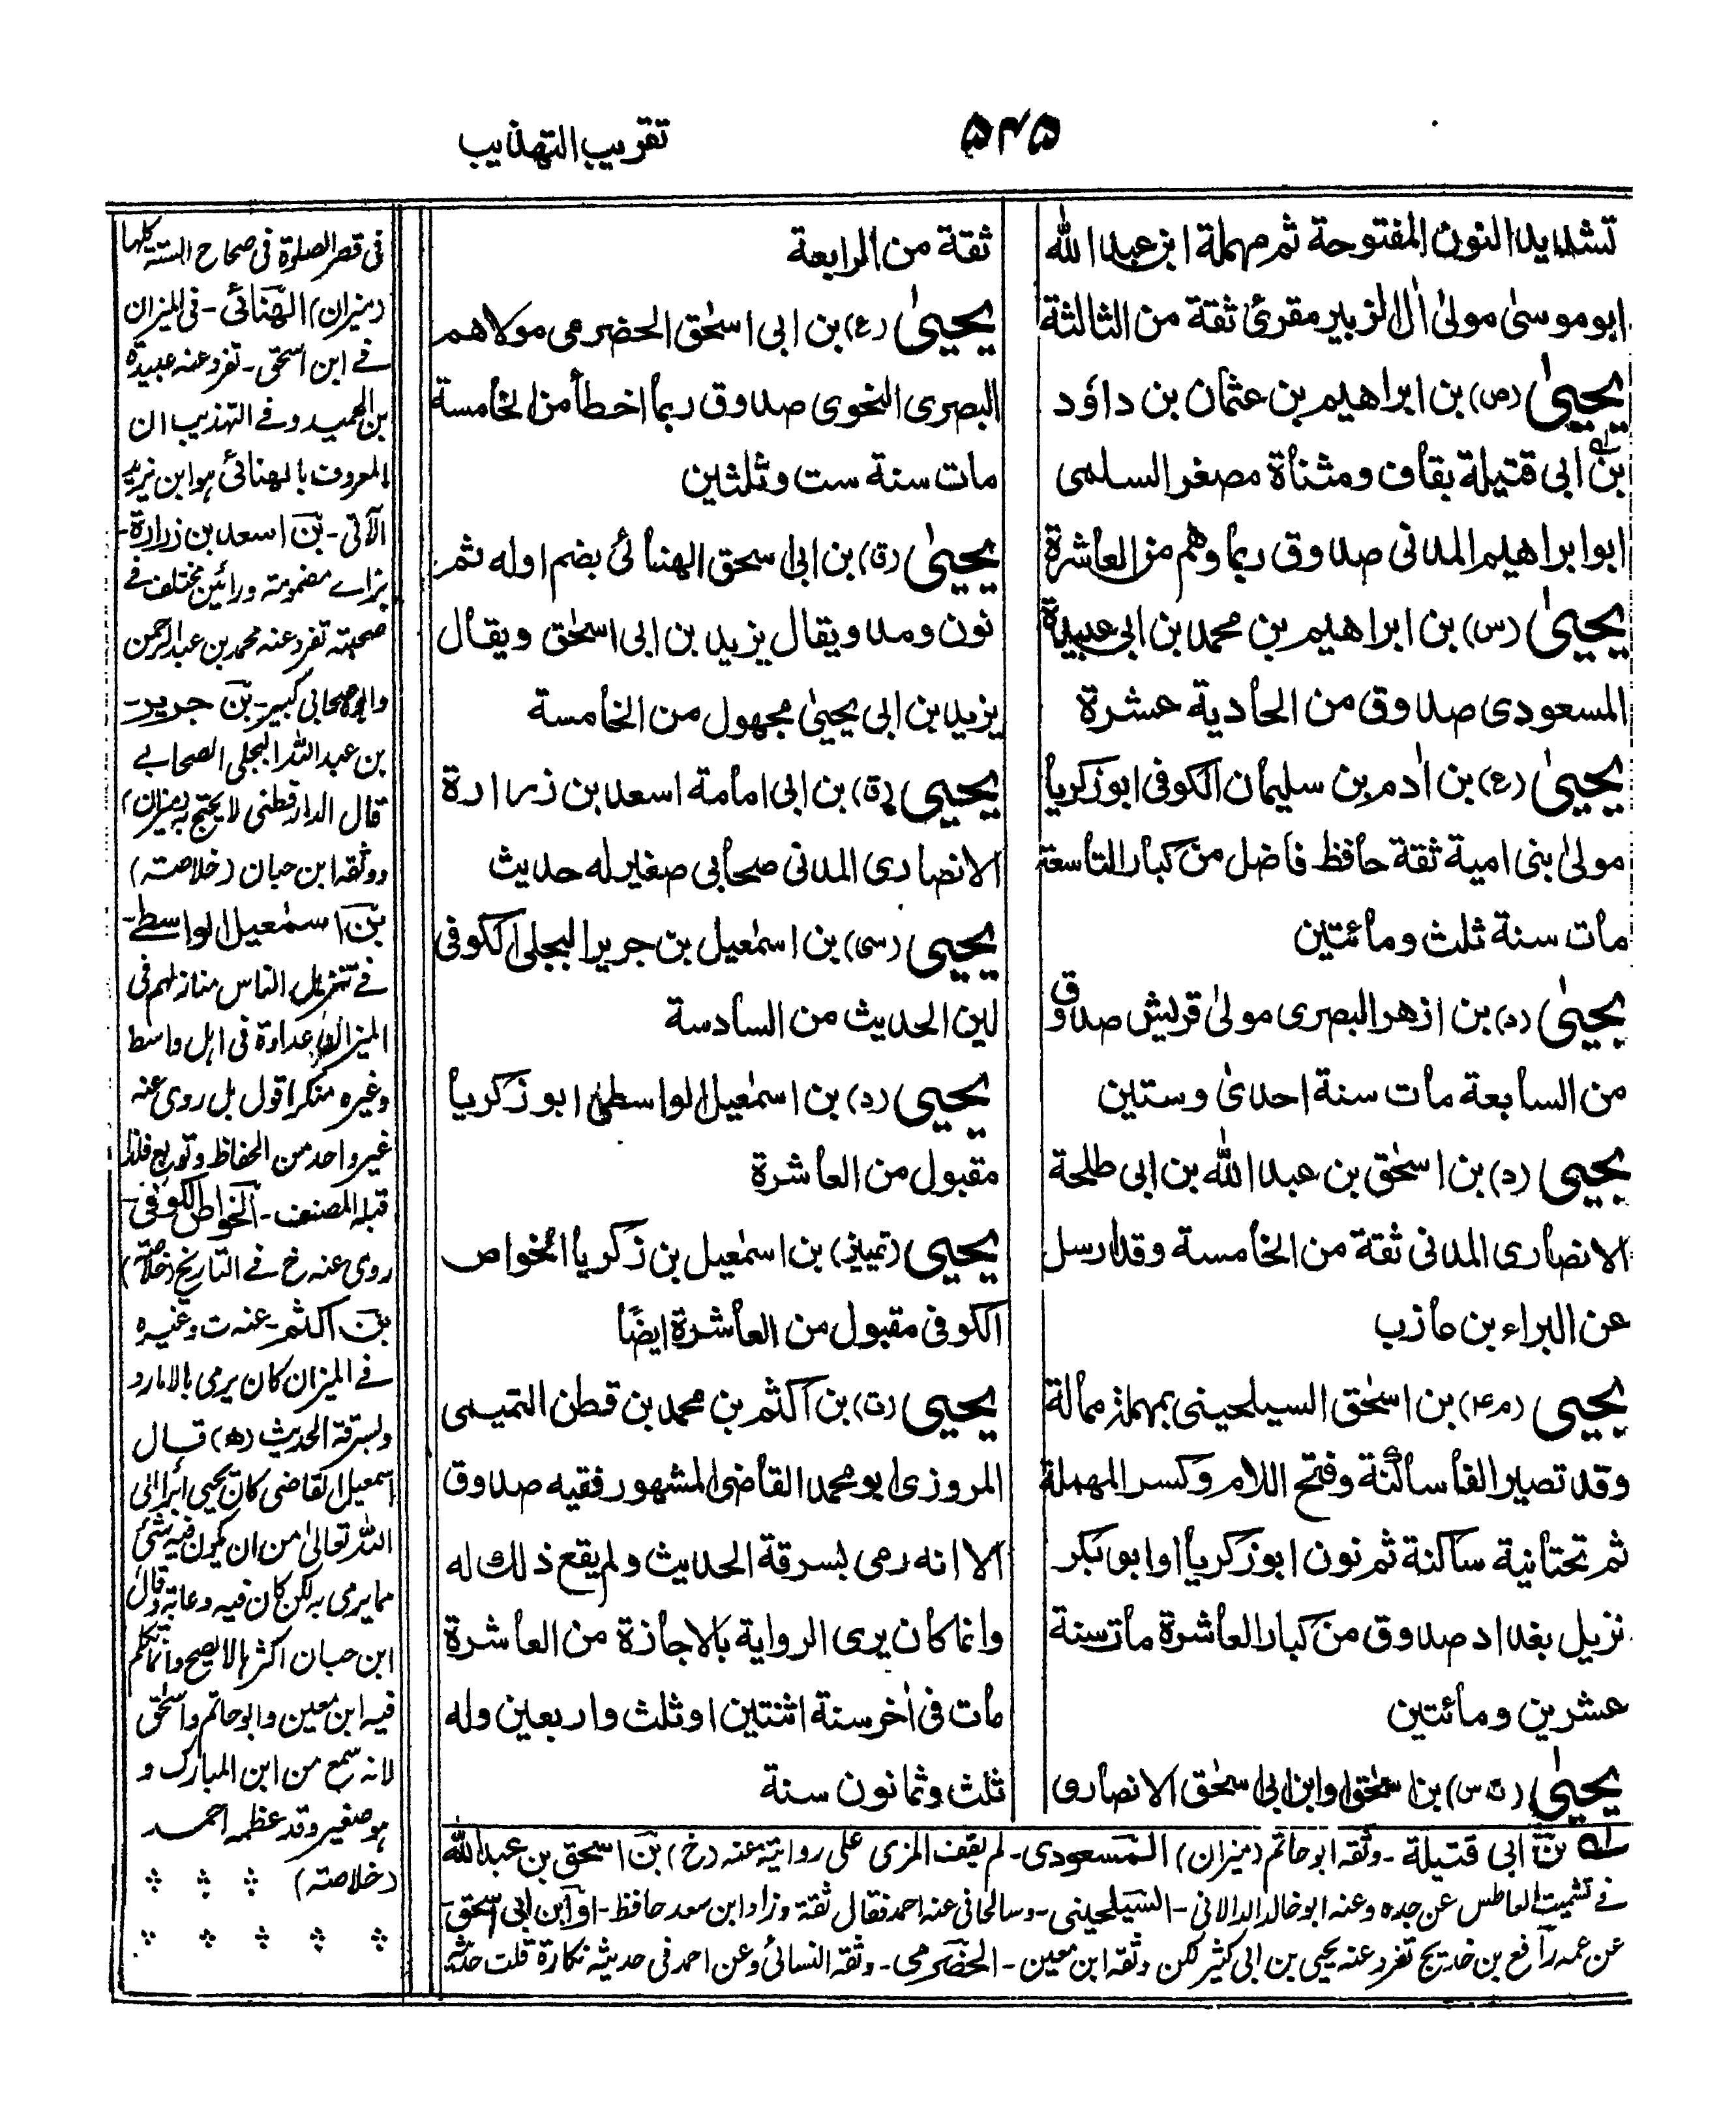 تقريب التهذيب
۵۴۵
تشديد النون المفتوحة ثم مهملة ابن عبد الله
ابو موسىٰ مولىٰ اٰل الزبير مقرئ ثقة من الثالثة
يحيىٰ (ص) بن ابراهيم بن عثمان بن داؤد
بن ابى قتيلة بقاف ومثناة مصغر السلمى
ابو ابراهيم المدنى صدوق ربما وهم من العاشرة
يحيىٰ (س) بن ابراهيم بن محمد بن ابى عبيدة
المسعودى صدوق من الحادية عشرة
يحيىٰ (ع) بن اٰدم بن سليمان الكوفى ابو زكريا
مولىٰ بنى امية ثقة حافظ فاضل من كبار التاسعة
مات سنة ثلث ومائتين
يحيىٰ (د) بن ازهر البصرى مولىٰ قريش صدوق
من السابعة مات سنة احدىٰ وستين
يحيى (د) بن اسحٰق بن عبد الله بن ابى طلحة
الانصارى المدنى ثقة من الخامسة وقد ارسل
عن البراء بن عازب
يحيى (م۴) بن اسحٰق السيلحينى بمهملة ممالة
وقد تصير الفا ساكنة وفتح اللام وكسر المهملة
ثم تحتانية ساكنة ثم نون ابو زكريا او ابو بكر
نزيل بغداد صدوق من كبار العاشرة مات سنة
عشرين ومائتين
يحيىٰ (ت س) بن اسحٰق او ابن ابى اسحٰق الانصارى
ثقة من الرابعة
يحيىٰ (ع) بن ابى اسحٰق الحضرمى مولاهم
البصرى النحوى صدوق ربما اخطأ من الخامسة
مات سنة ست وثلثين
يحيىٰ (ق) بن ابى اسحق الهنائى بضم اوله ثم
نون ومد ويقال يزيد بن ابى اسحٰق ويقال
يزيد بن ابى يحيىٰ مجهول من الخامسة
يحيى (ق) بن ابى امامة اسعد بن زرارة
الانصارى المدنى صحابى صغير له حديث
يحيى (سى) بن اسمٰعيل بن جرير البجلى الكوفى
لين الحديث من السادسة
يحيى (د) بن اسمٰعيل الواسطىٰ ابو زكريا
مقبول من العاشرة
يحيى (تمييز) بن اسمٰعيل بن زكريا الخواص
الكوفى مقبول من العاشرة ايضًا
يحيى (ت) بن اكثم بن محمد بن قطن التميمى
المروزى ابو محمد القاضى المشهور فقيه صدوق
الا انه رمى بسرقة الحديث ولم يقع ذلك له
وانما كان يرى الرواية بالاجازة من العاشرة
مات فى اٰخر سنة اثنتين او ثلث واربعين وله
ثلث وثمانون سنة
لـه بن ابى قتيلة - وثقه ابو حاتم (ميزان) المسعودى - لم يقف المزى على روايته عنه (خ) بن اسحق بن عبد الله
فى تشميت العاطس عن جده وعنه ابو خالد الدالانى - السيلحينى - وسالحانى عنه احمد فقال ثقة وزاد ابن سعد حافظ - او ابن ابى اسحق -
عن عمه رافع بن خديج تفرد عنه يحيى بن ابى كثير لكن وثقه ابن معين - الحضرمى - وثقه النسائى وعن احمد فى حديثه نكارة قلت حديثه
فى قصر الصلوة فى صحاح الستة كلها
(ميزان) الهنائى - فى الميزان
فى ابن اسحٰق - تفرد عنه عبيدة
بن حميد وفى التهذيب ان
المعروف بالهنائى هو ابن يزيد
الآتى - بن اسعد بن زرارة -
بزاے مضمومة ورائين مختلف فے
صحبته تفرد عنه محمد بن عبد الرحمن
وابوه صحابى كبير - بن جرير -
بن عبد الله البجلى الصحابے
قال الدارقطنى لا يحتج به (ميزان)
ووثقه ابن حبان (خلاصة)
بن اسمٰعيل الواسطے -
فے تنزيل الناس منازلهم فى
الميزان عداوة فى اهل واسط
وغيره منكر اقول بل روى عنه
غير واحد من الحفاظ وتوبع فلذا
قبله المصنف - الخواص الكوفى -
روى عنه خ فے التاريخ (خلاصة)
بن اكثم - عنه ت وغيره
فے الميزان كان يرمى بالامارد
وبسرقة الحديث (ه) قال
اسمعيل القاضى كان يحيى ابرأ الى
الله تعالىٰ من ان يكون فيه شئ
مما يرمى به لكن كان فيه دعابة وقال
ابن حبان اكثرها لا يصح وانما تكلم
فيه ابن معين وابو حاتم واسحٰق
لانه سمع من ابن المبارك و
هو صغير وقد عظمه احمد
(خلاصة)